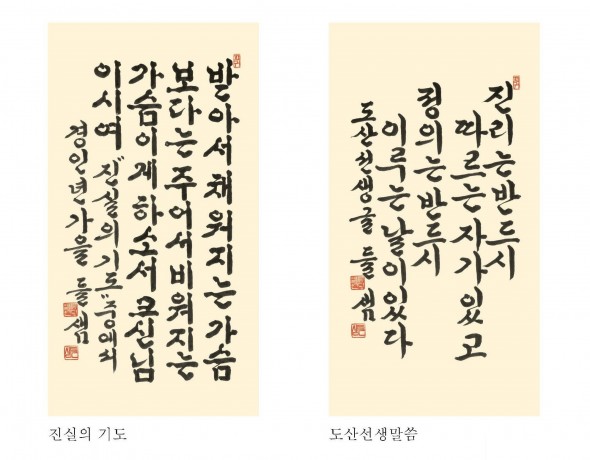 받아서채워지는가슴
보다는주어서비워지는
가슴이게하소서 크신님
이시여 "진실의기도"중에서
경인년가을 들샘
진실의 기도
진리는반드시
따르는자가있고
정의는반드시
이루는날이있다
도산선생글 들샘
도산선생말씀